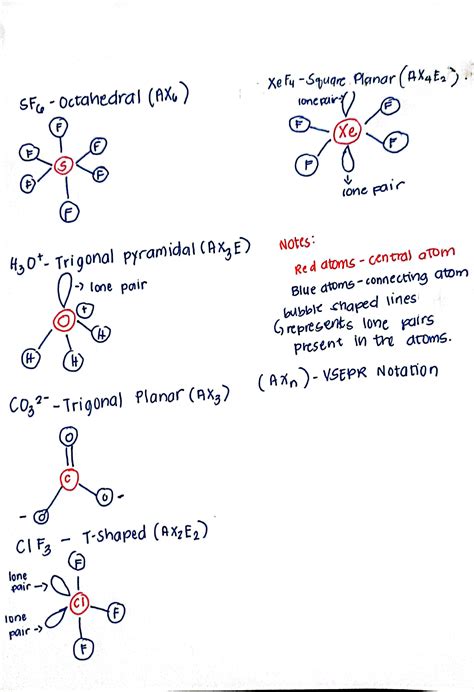 SF6 - Octahedral (AX6)
F
F
F
S
F
F
F
XeF4 - Square Planar (AX4E2).
lone pair
F
F
Xe
F
F
lone pair
H3O+ - Trigonal pyramidal (AX3E)
→ lone pair
+
O
H
H
H
Notes:
Red atoms - central atom
Blue atoms - connecting atom
bubble shaped lines
represents lone pairs
present in the atoms.
(AXn) - VSEPR Notation
CO3 2- - Trigonal Planar (AX3)
O
C
- O
O -
ClF3 - T-shaped (AX2E2)
F
lone
pair →
Cl
F
lone
pair →
F